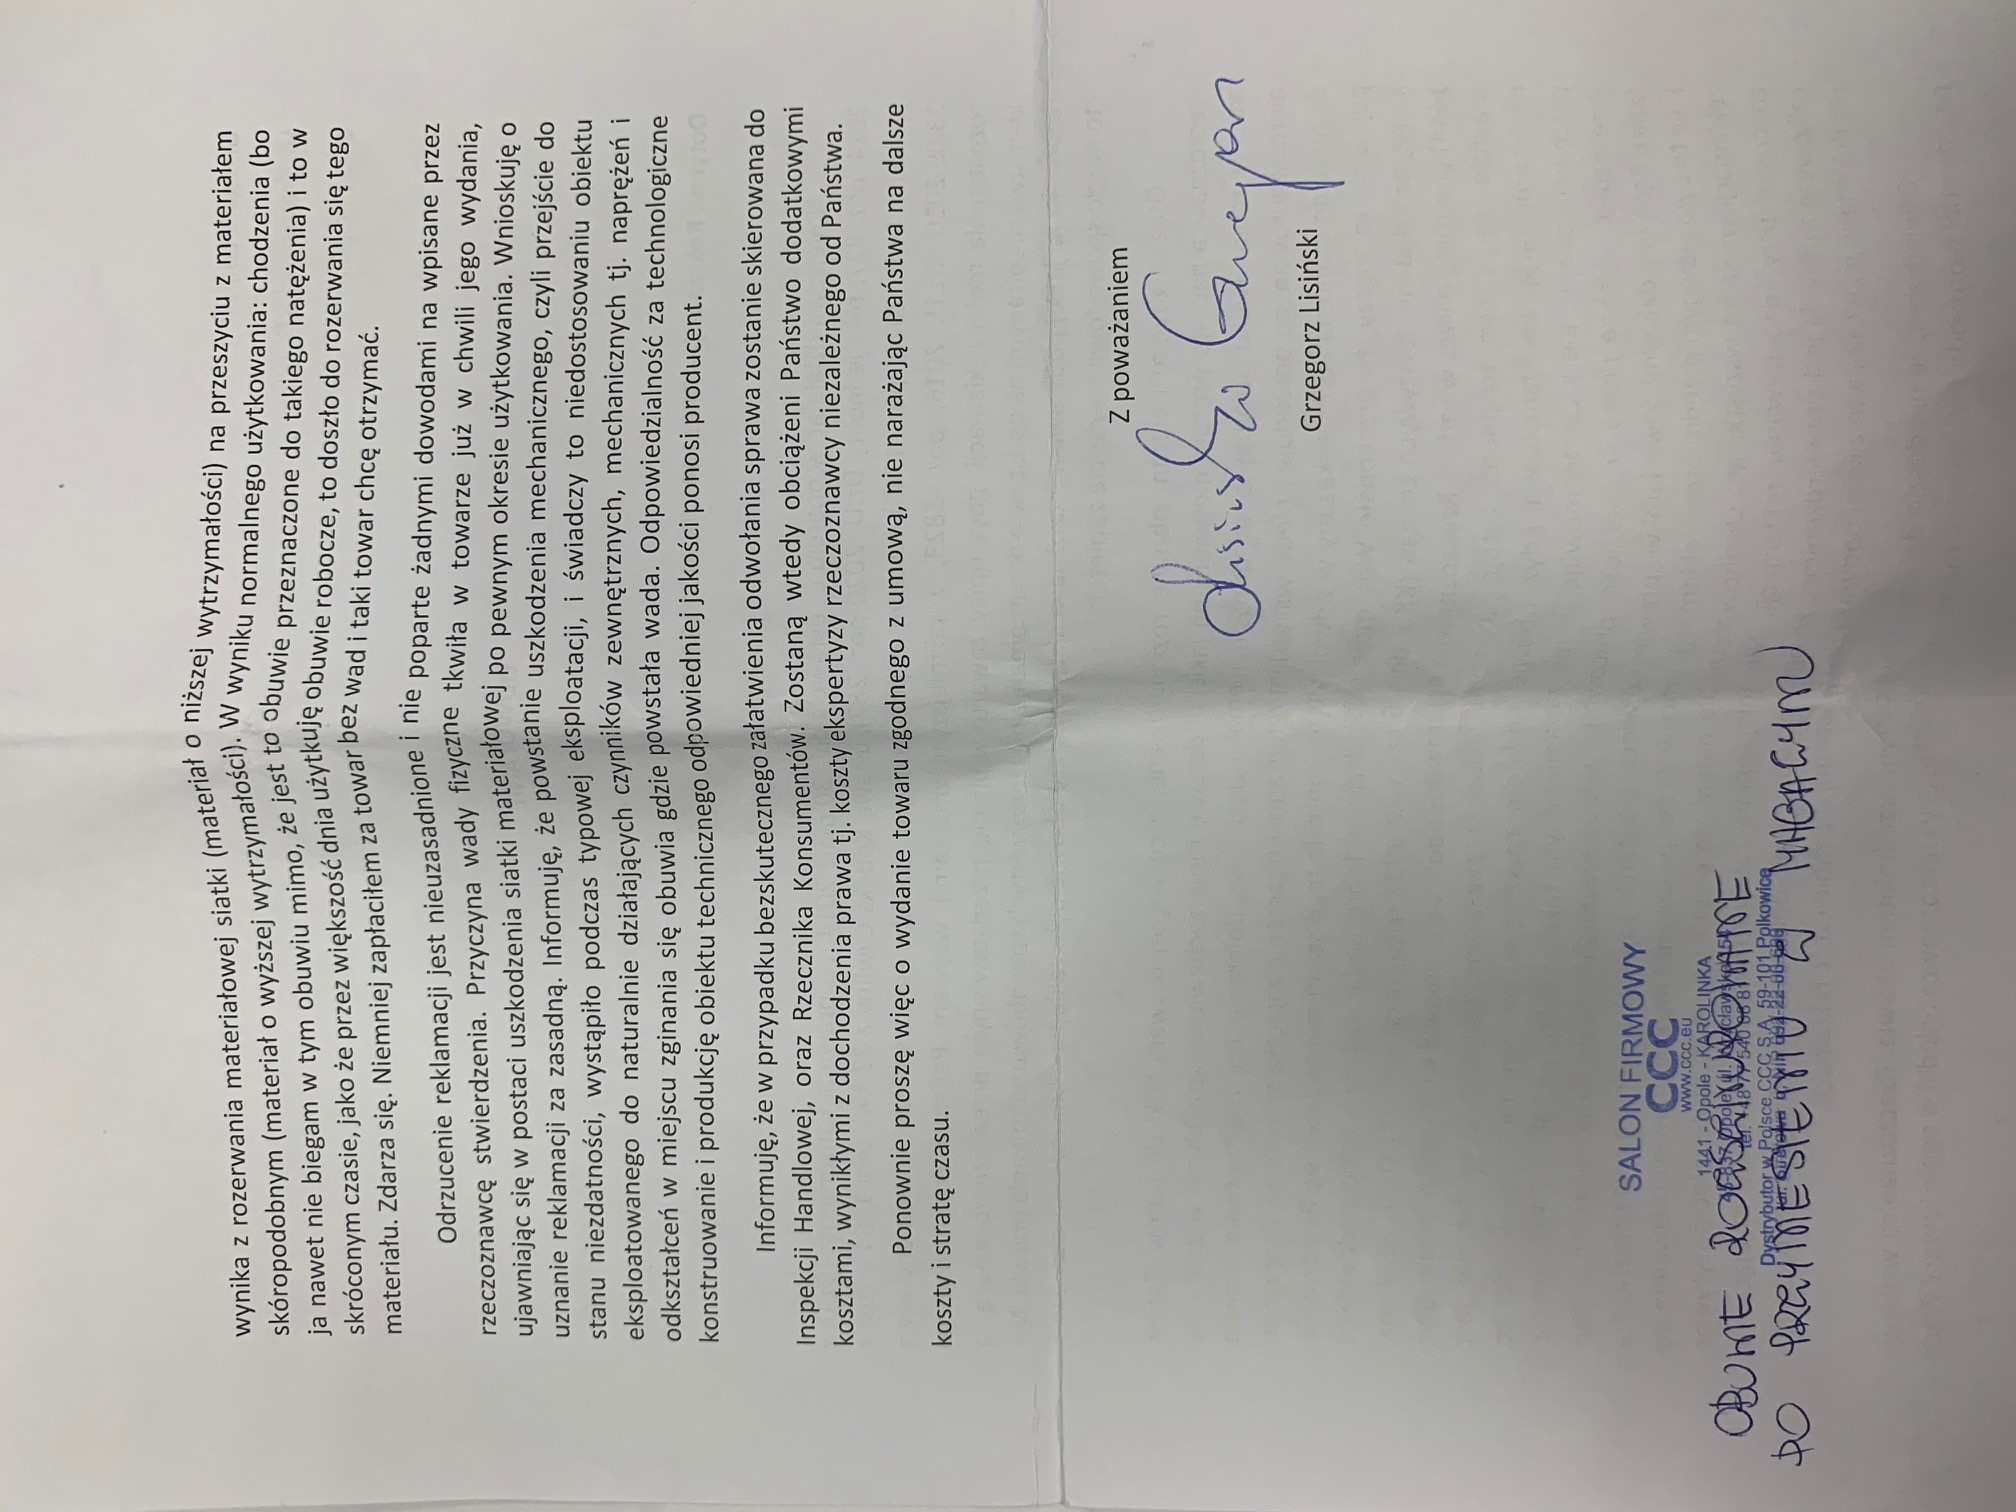 wynika z rozerwania materiałowej siatki (materiał o niższej wytrzymałości) na przeszyciu z materiałem
skóropodobnym (materiał o wyższej wytrzymałości). W wyniku normalnego użytkowania: chodzenia (bo
ja nawet nie biegam w tym obuwiu mimo, że jest to obuwie przeznaczone do takiego natężenia) i to w
skróconym czasie, jako że przez większość dnia użytkuję obuwie robocze, to doszło do rozerwania się tego
materiału. Zdarza się. Niemniej zapłaciłem za towar bez wad i taki towar chcę otrzymać.
Odrzucenie reklamacji jest nieuzasadnione i nie poparte żadnymi dowodami na wpisane przez
rzeczoznawcę stwierdzenia. Przyczyna wady fizyczne tkwiła w towarze już w chwili jego wydania,
ujawniając się w postaci uszkodzenia siatki materiałowej po pewnym okresie użytkowania. Wnioskuję o
uznanie reklamacji za zasadną. Informuję, że powstanie uszkodzenia mechanicznego, czyli przejście do
stanu niezdatności, wystąpiło podczas typowej eksploatacji, i świadczy to niedostosowaniu obiektu
eksploatowanego do naturalnie działających czynników zewnętrznych, mechanicznych tj. naprężeń i
odkształceń w miejscu zginania się obuwia gdzie powstała wada. Odpowiedzialność za technologiczne
konstruowanie i produkcję obiektu technicznego odpowiedniej jakości ponosi producent.
Informuję, że w przypadku bezskutecznego załatwienia odwołania sprawa zostanie skierowana do
Inspekcji Handlowej, oraz Rzecznika Konsumentów. Zostaną wtedy obciążeni Państwo dodatkowymi
kosztami, wynikłymi z dochodzenia prawa tj. koszty ekspertyzy rzeczoznawcy niezależnego od Państwa.
Ponownie proszę więc o wydanie towaru zgodnego z umową, nie narażając Państwa na dalsze
koszty i stratę czasu.
Z poważaniem
Grzegorz Lisiński
SALON FIRMOWY
CCC
www.ccc.eu
1441 - Opole - KAROLINKA
OBUWIE
Dystrybutor w Polsce CCC S.A. 59-101 Polkowice
DO W MAGACYM